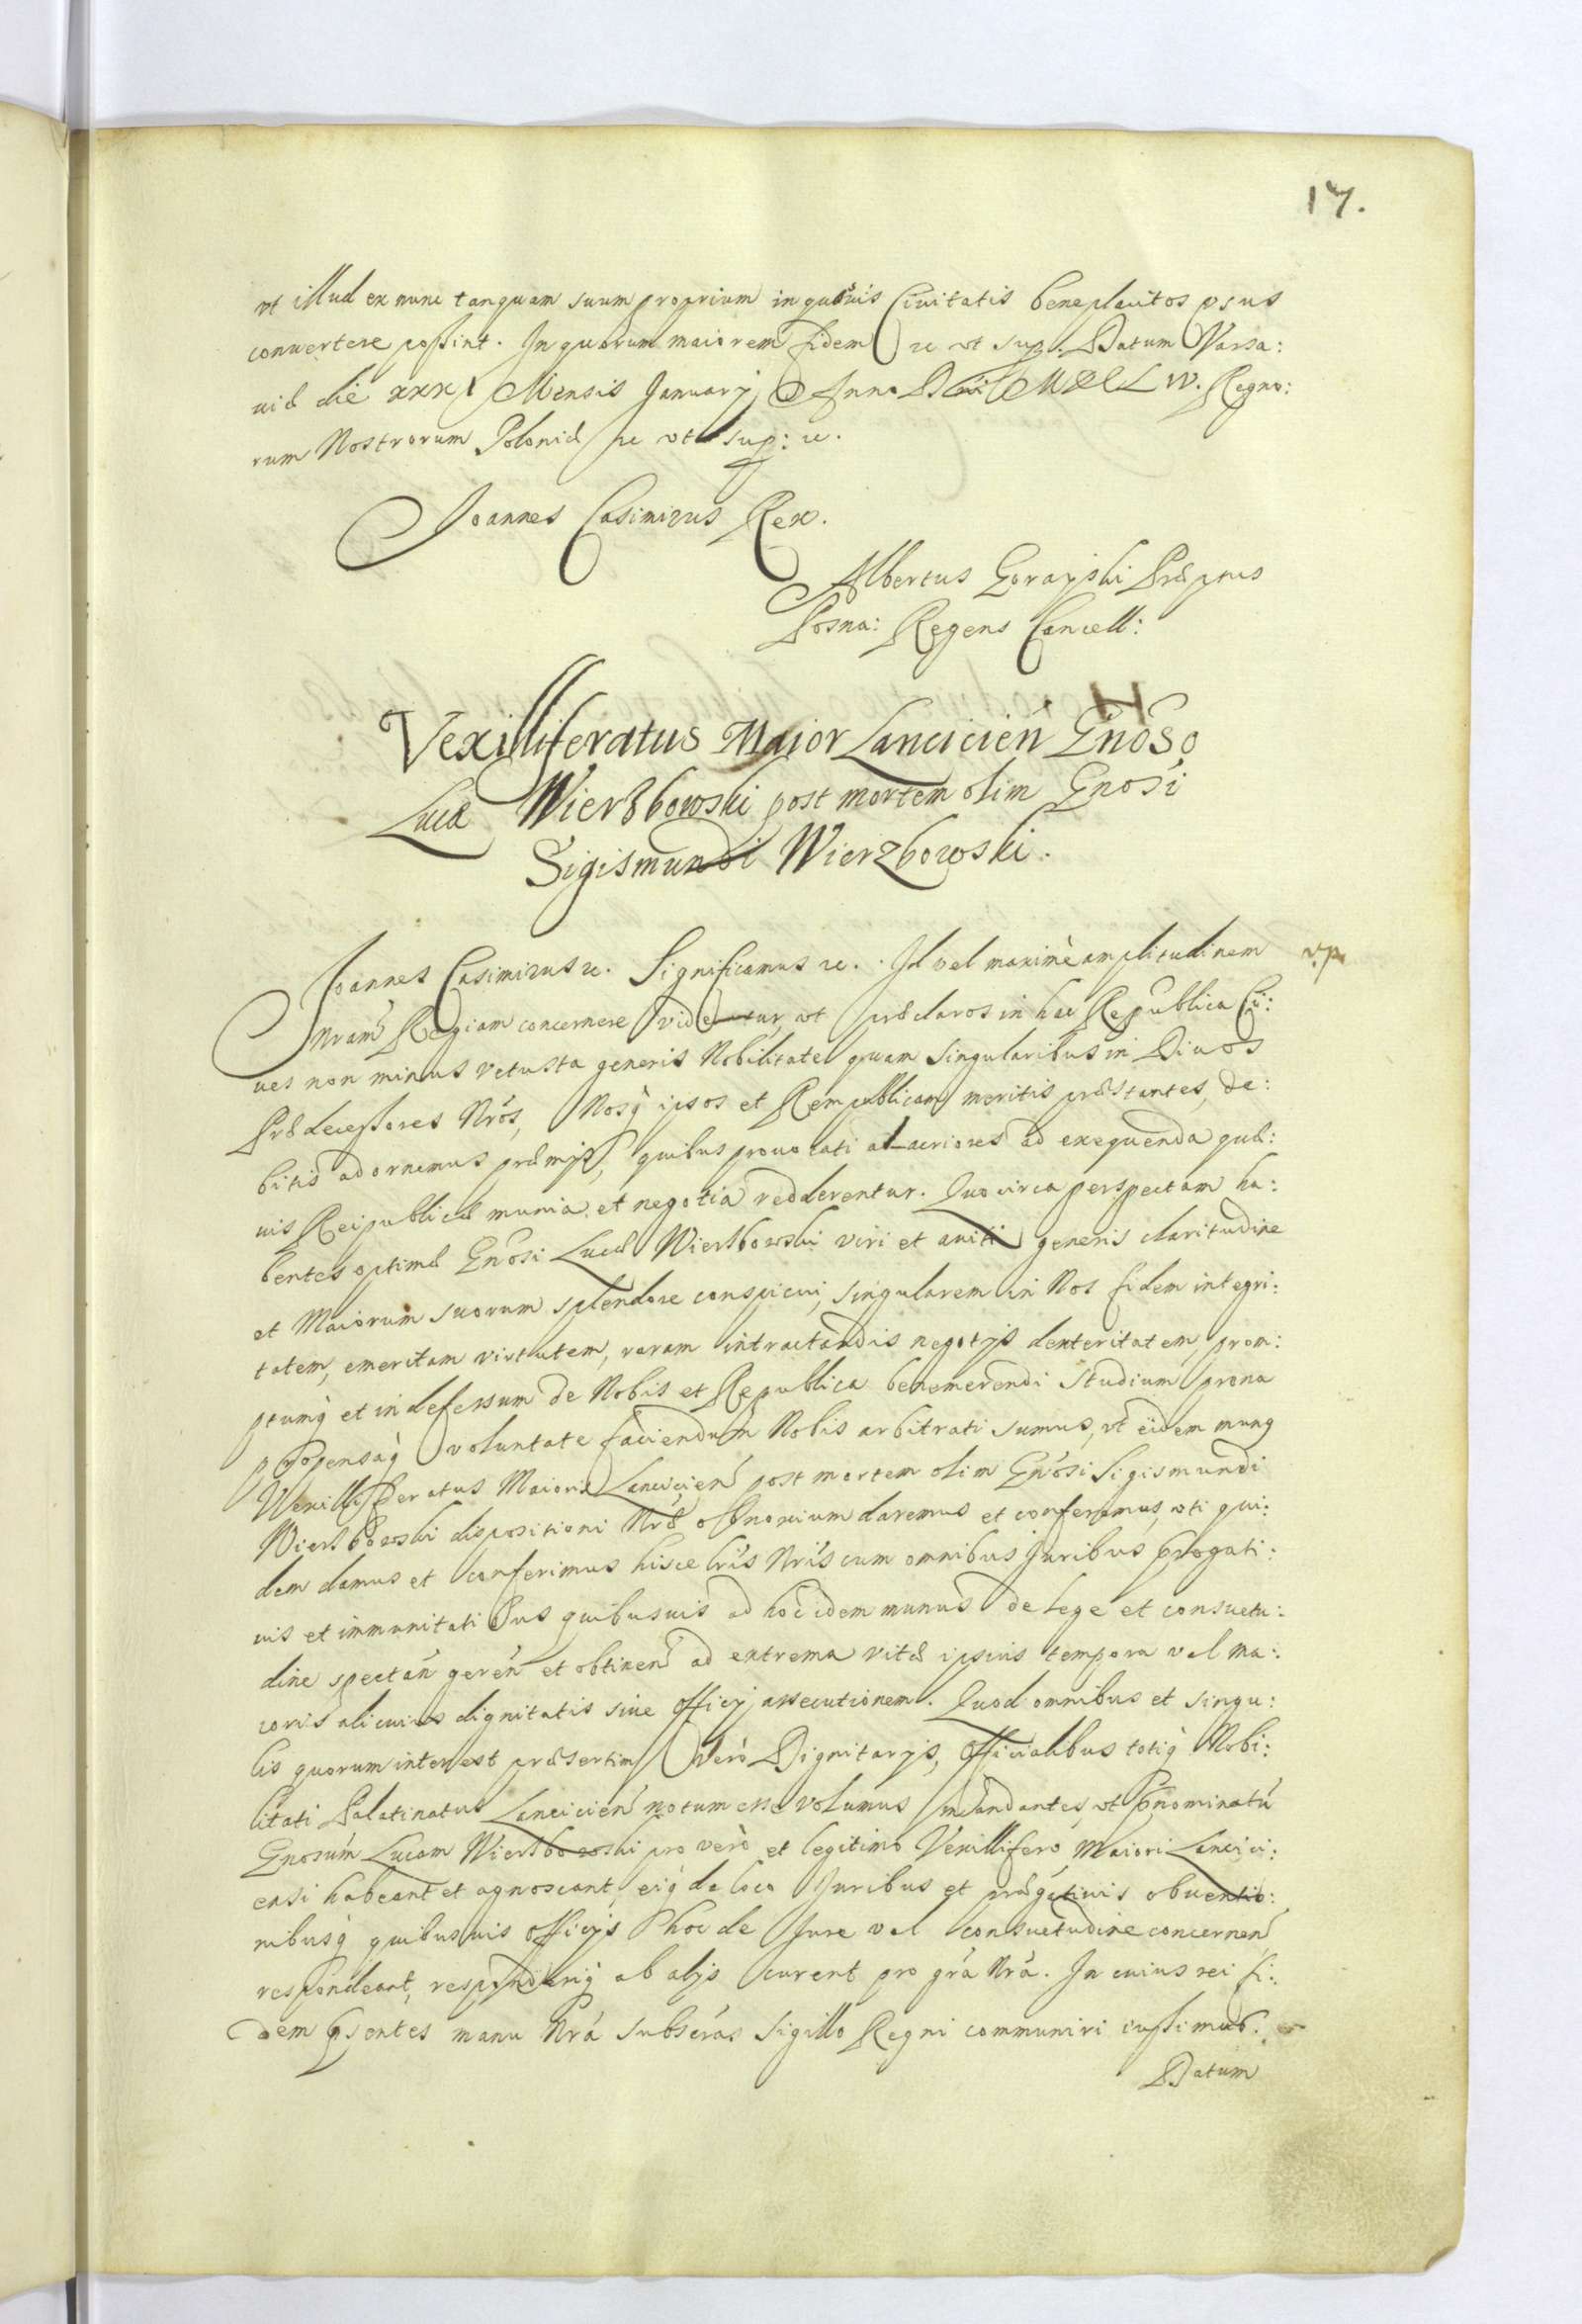 17.
ut illud ex nunc tanquam suum proprium in quosuis Ciuitatis beneplacitos vsus
conuertere possint. In quorum maiorem fidem etc ut sup: Datum Varsa:
uiæ die xxxi Mensis January Anno Dni MDCLIV. Regno:
rum Nostrorum Poloniæ etc vt sup: etc.
Joannes Casimirus Rex.
Albertus Gorayski Præptus
Posna: Regens Cancell:
Vexilliferatus Maior Lancicień Gnoso
Lucæ Wierzbowski post mortem olim Gnosi
Sigismundi Wierzbowski.
Joannes Casimirus etc. Significamus etc. Id vel maximè amplitudinem
Nram Regiam concernere videtur, ut præclaros in hac Republica Ci:
ues non minus vetusta generis Nobilitate quam singularibus in Diuos
Prædecessores Nros, Nosq ipsos et Rempublicam meritis præstantes, de:
bitis adornemus præmijs, quibus prouocati alacriores ad exequenda quæ:
uis Reipublicæ munia et negotia redderentur. Quocirca perspectam ha:
bentes optimè Gnosi Lucæ Wierzbowski viri et auiti generis claritudine
et Maiorum suorum splendore conspicui, singularem in Nos fidem integri:
tatem, emeritam virtutem, raram in tractandis negotijs dexteritatem, prom:
ptumq et indefessum de Nobis et Republica benemerendi studium prona
propensaq voluntate faciendum Nobis arbitrati sumus, ut eidem munq
Vexilliferatus Maioris Lancicień post mortem olim Gnosi Sigismundi
Wierzbowski dispositioni Nræ obnoxium daremus et conferemus, uti qui:
dem damus et conferimus hisce lris Nris cum omnibus Juribus prrogati:
uis et immunitatibus quibusuis ad hoc idem munus de lege et consuetu:
dine spectań gereń et obtineń ad extrema vitæ ipsius tempora vel ma:
ioris alicuius dignitatis siue officij assecutionem. Quod omnibus et singu:
lis quorum interest præsertim verò Dignitarijs, Officialibus totiq Nobi:
litati Palatinatus Lancicień notum esse volumus mandantes, ut pnominatu
Gnosum Lucam Wierzbowski pro vero et legitimo Vexillifero Maiori Lancici:
ensi habeant et agnoscant, eiq de loco Juribus et prærogatiuis obuentio:
nibusq quibusuis officijs hoc de Jure vel consuetudine concerneń
respondeant, responderiq ab alijs curent pro gra Nra. In cuius rei fi:
dem pʃentes manu Nra subscras sigillo Regni communiri iussimus.
Datum